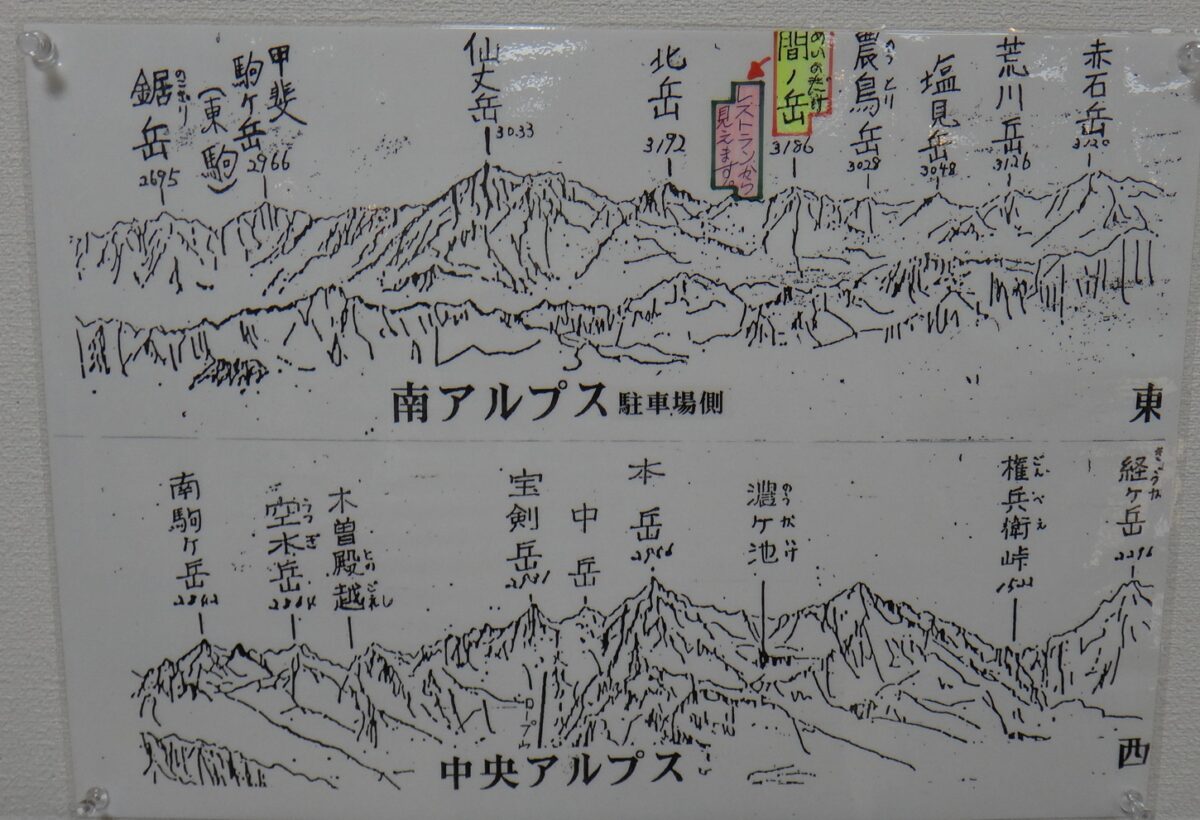 鋸岳
のこぎり
2695
甲斐
駒ヶ岳
(東駒)
2966
仙丈岳
3033
北岳
3192
レストランから
見えます。
間ノ岳
あいのだけ
3186
農鳥岳
のうとり
3028
塩見岳
3048
荒川岳
3126
赤石岳
3120
南アルプス 駐車場側
東
南駒ヶ岳
2842
空木岳
うつぎ
2864
木曽殿越
とのごえし
宝剣岳
中岳
本岳
2956
濃ヶ池
のうがいけ
権兵衛峠
ごんべえ
1522
経ヶ岳
2296
ロープ
中央アルプス
西